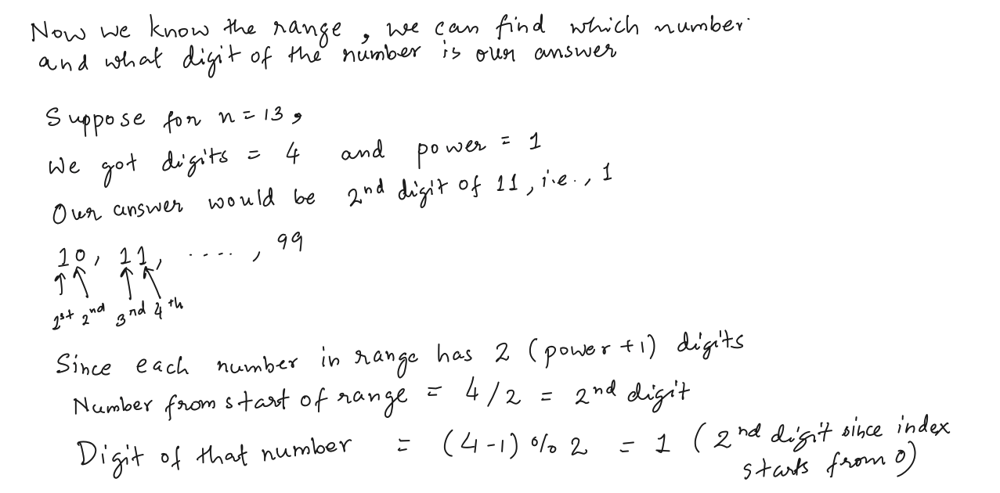 Now we know the range, we can find which number
and what digit of the number is our answer
Suppose for n = 13,
We got digits = 4 and power = 1
Our answer would be 2nd digit of 11, i.e., 1
10, 11, ...., 99
1st 2nd 3nd 4th
Since each number in range has 2 (power +1) digits
Number from start of range = 4/2 = 2nd digit
Digit of that number = (4-1) % 2 = 1 (2nd digit since index
starts from 0)